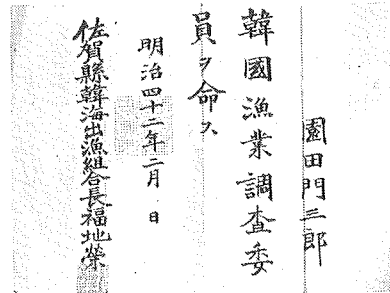 園田門三郎
韓國漁業調査委
員ヲ命ス
明治四十二年二月 日
佐賀縣韓海出漁組合長福地榮